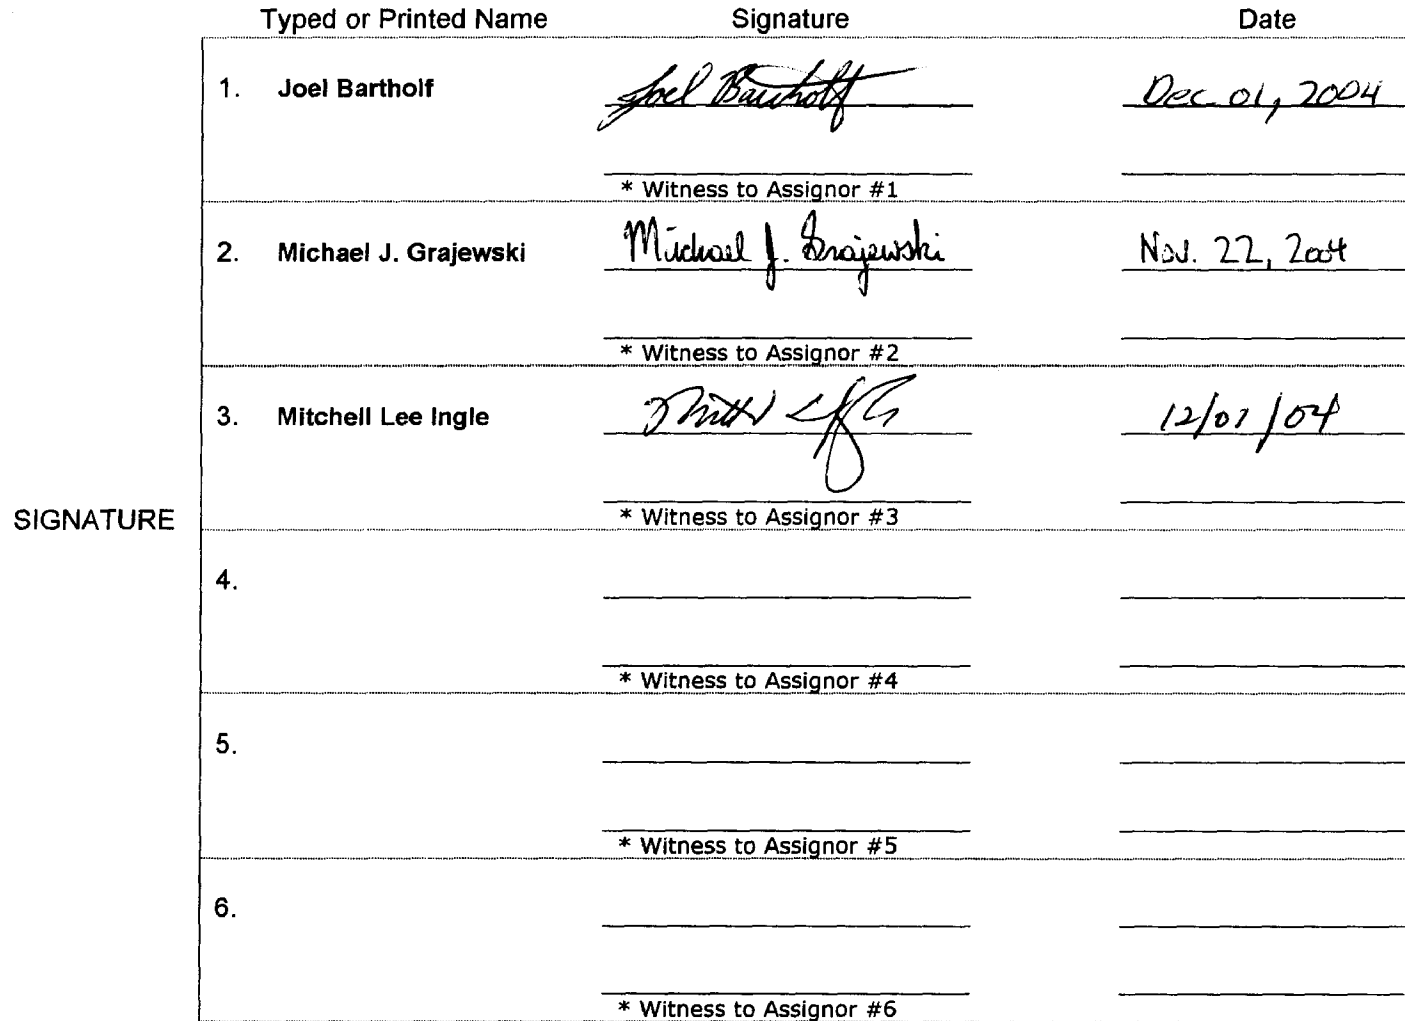 Typed or Printed Name Signature Date
1. Joel Bartholf Joel Bartholf Dec 01, 2004
* Witness to Assignor #1
2. Michael J. Grajewski Michael J. Grajewski Nov. 22, 2004
* Witness to Assignor #2
3. Mitchell Lee Ingle 12/01/04
* Witness to Assignor #3
SIGNATURE
4.
* Witness to Assignor #4
5.
* Witness to Assignor #5
6.
* Witness to Assignor #6